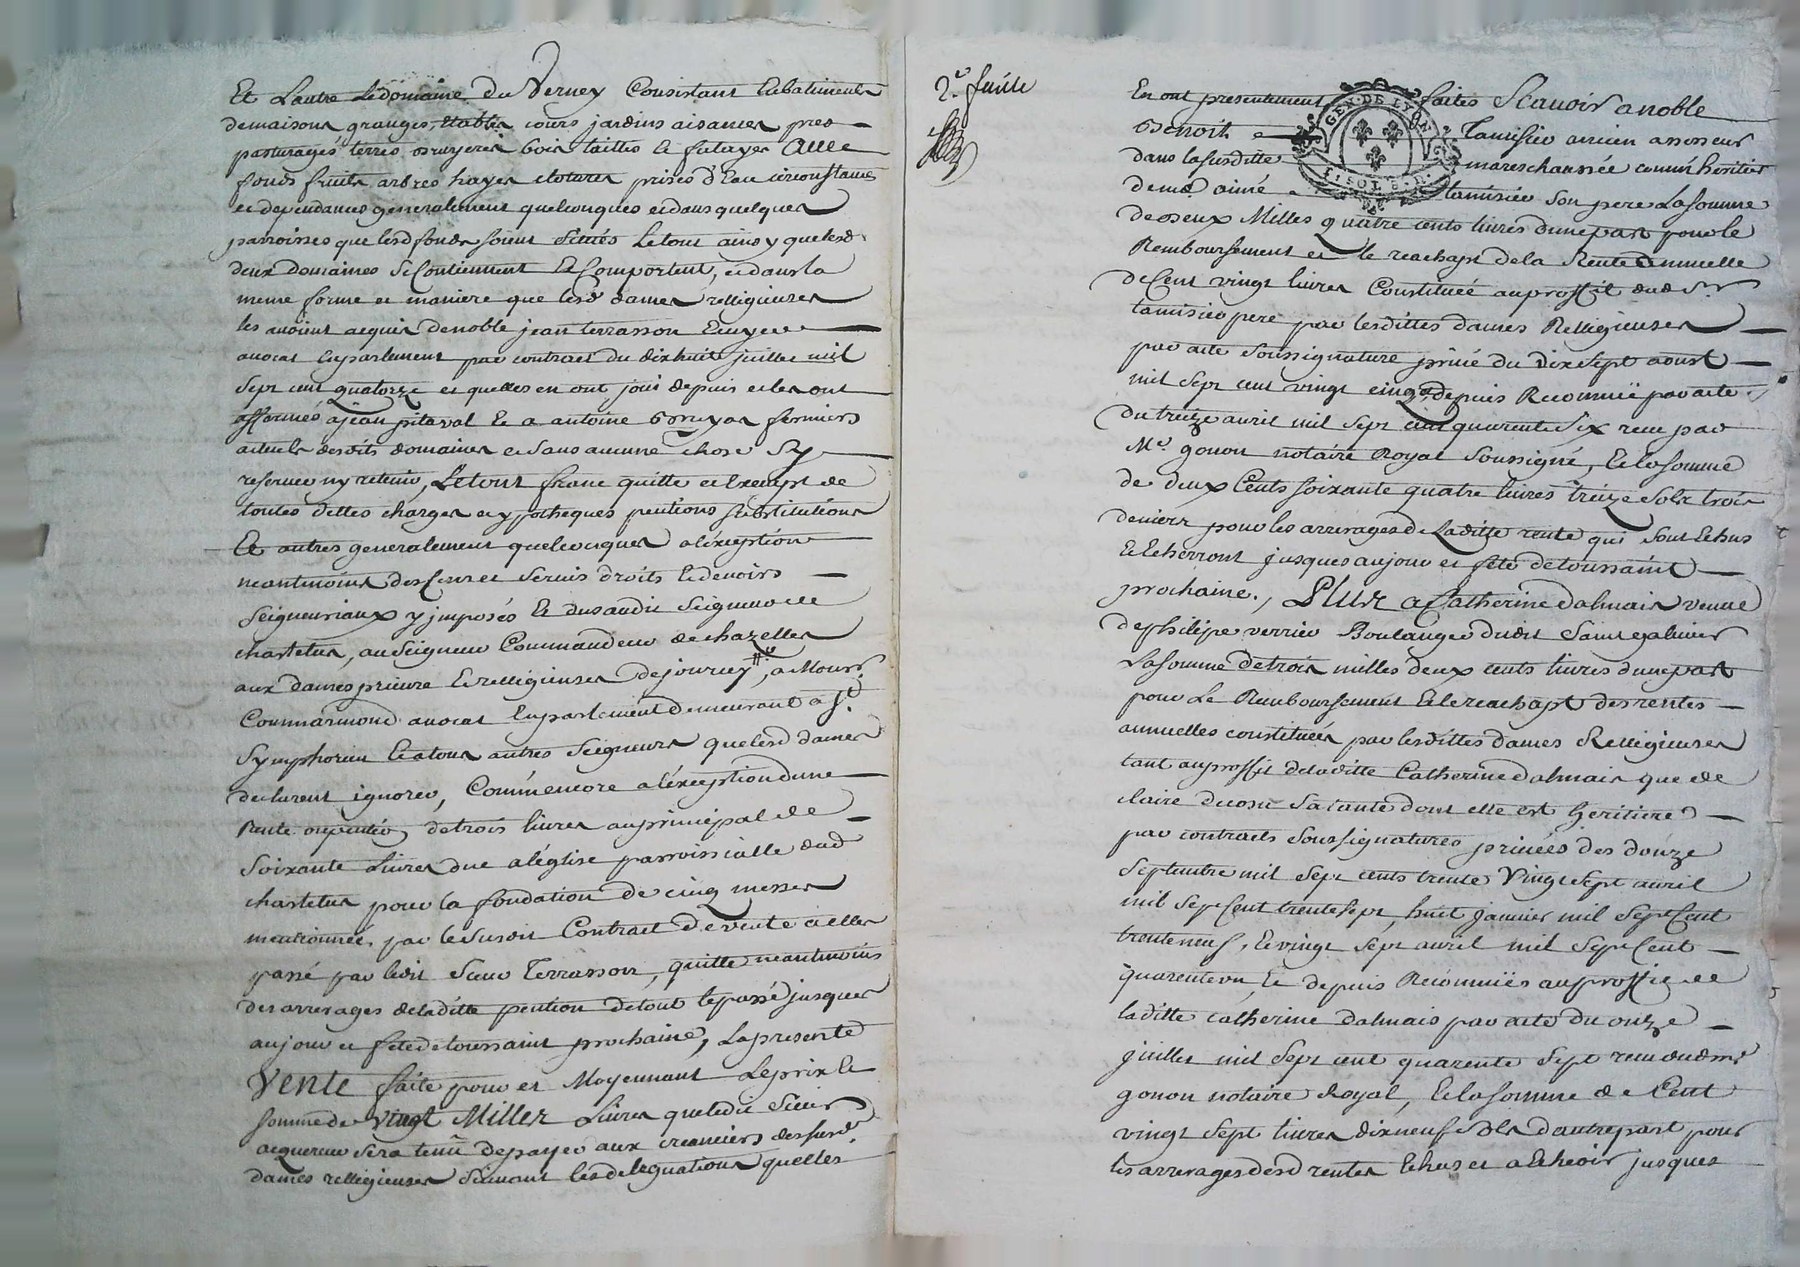 Et Lautre Le domaine Du Verney Consistant En batiments
de maisons granges, Etables cours jardins aisances pres
pasturages terres bruyeres bois taillis et futayes Avec
fonds fruits arbres hayes clotures prises d'Eau circonstances
et dependances generalement quelconques et dans quelques
parroisses que lesd fonds soient Situés Le tout ainsy que lesd
deux domaines Se Contiennent Et Comportent, et dans la
meme forme et maniere que lesd dames relligieuses
les avoient acquis de noble jean terrasson Ecuyer
avocat En parlement par contract du dix huit juillet mil
Sept cent quatorze et quelles en ont joui depuis et les ont
affermés a jean pitaval Et a antoine fermiers
actuels desdits domaines et Sans aucune chose Sy
reserver ny retenir, Le tout franc quitte et Exempt de
toutes dettes charges et ypotheques pentions Substitutions
Et autres generalement quelconques a l'exception
neantmoins des Cens et Servis droits Et devoirs
Seigneuriaux y imposés Et dus audit Seigneur de
chastelus, au Seigneur Commandeur de chazelles
aux dames prieure Et relligieuses de jourcey, a Monsr.
Commarmond avocat En parlement demeurant a St.
Symphorien Et a tous autres Seigneurs que lesd dames
declarent ignorer, Comme encore a l'exception dune
Rente ou pention de trois livres au principal de
Soixante Livres due a l'eglise parroissialle dud
chastelus pour la fondation de cinq messes
mentionnée par le Susdit Contract de vente a elles
passé par ledit Sieur Terrasson, quitte neantmoins
des arrerages de ladite pention de tout le passé jusques
au jour et fete de toussaint prochaine, La presente
Vente faite pour et Moyennant Le prix Et
Somme de Vingt Milles Livres que ledit Sieur
acquereur Sera tenu de payer aux creanciers desSusd.
dames relligieuses Suivant les deleguations quelles
2e. fuille
En ont presentement faites Scavoir a noble
Benoit Tamisier ancien assesseur
dans la Susditte mareschaussée comme heritier
de me. aimé tamisier Son pere La Somme
de deux Milles quatre cents livres dune part pour le
Remboursement et le reachapt de la Rente annuelle
de Cent vingt livres Constituée au proffit dud Sr.
tamisier pere par lesdittes dames Relligieuses
par acte Sous signature privé du dix Sept aoust
mil Sept cent vingt cinq, depuis Reconnuë par acte
du treize avril mil Sept cent quarente Six receu par
Me. gonon notaire Royal Soussigné, Et la Somme
de deux Cents Soixante quatre livres treize Sols trois
deniers pour les arrerages de Laditte rente qui Sont Echus
Et Echerront jusques au jour et fete de toussaint
prochaine, Plus a Catherine dalmais veuve
de philipe verrier Boulanger dudit Saint galmier
La Somme de trois milles deux cents livres dune part
pour Le Remboursement Et le reachapt des rentes
annuelles constituées par lesdittes dames Relligieuses
tant au proffit de laditte Catherine dalmais que de
claire Sa tante dont elle est heritiere
par contracts Sous signatures privées des douze
Septembre mil Sept cents trente Vingt Sept avril
mil Sept Cent trente Sept, huit janvier mil Sept Cent
trente neuf, Et vingt Sept avril mil Sept Cent
quarente un, Et depuis Reconnuës au proffit de
laditte catherine dalmais par acte du onze
juillet mil Sept cent quarente Sept receu dudt me
gonon notaire Royal, Et la Somme de Cent
vingt Sept livres dix neuf Sols d'autre part pour
les arrerages desd rentes Echus et a Echeoir jusques
GEN. DE LYON